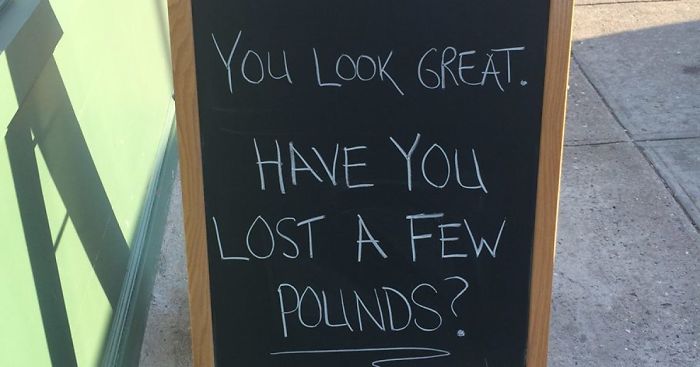 YOU LOOK GREAT.
HAVE YOU
LOST A FEW
POUNDS?